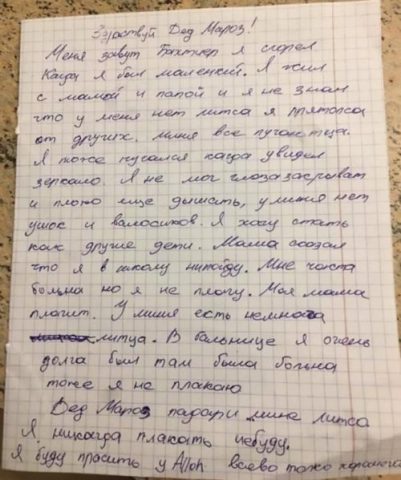 Здраствуй Дед Мароз!
Меня завут Бахтиёр я сгорел
Кагда я был маленкий. Я жил
с мамай и папой и я не знал
что у меня нет литса я прятолса
от других. миня все пугаютца.
Я тоже пугался кагда увидел
зеркало. Я не мог глоза закрыват
и плохо ище дышать, у миня нет
ушок и валосиков. Я хачу стать
как другие дети. Мама сказал
что я в школу нипойду. Мне часта
больна но я не плочу. Моя мама
плачит. У миня есть немнога
литца. В бальнице я очень
долга был там была больна
тоже я не плакаю
Дед Мароз падари мине литса
Я никагда плакать небуду.
Я буду прасить у Alloh всево тоже харошега